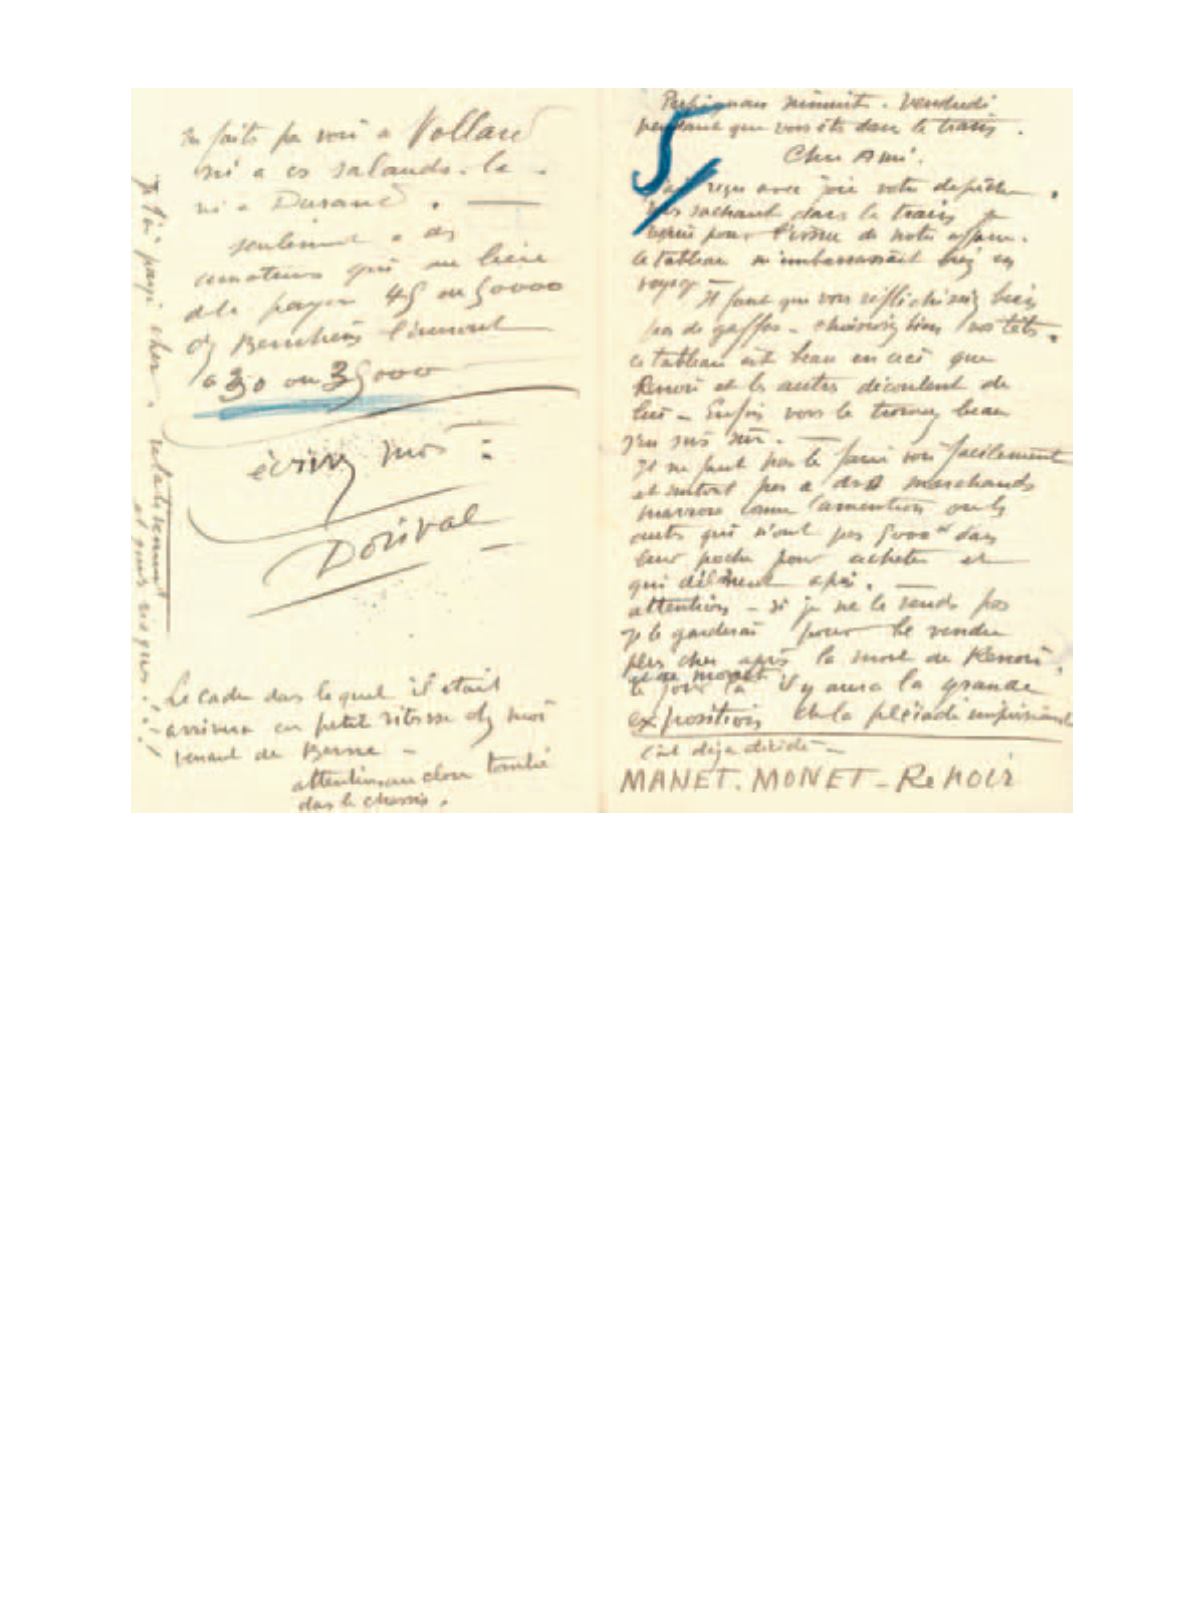 Perpignan minuit. Vendredi
pendant que vous êts dans le train.
Cher Ami.
5/
reçu avec joie votre depêche.
sachant dans le train je
pour l'issue de notre affaire.
le tableau m'embarrassait en
voyage —
Il faut que vous réflichissiez bien
pas de gaffes — choisissez bien vos têts.
ce tableau est beau en ceci que
Renoir et les autres découlent de
lui — Enfin vous le trouvez beau
j'en suis sûr. —
Il ne faut pas le faire voir facilement
et surtout pas a des marchands
marrons comme ou les
autres qui n'ont pas 5000 dans
leur poche pour acheter et
qui après. —
attention — si je ne le vends pas
je le garderai pour le vendre
plus cher après la mort de Renoir
et de monet
le jour là il y aura la grande
expositions de la pleiade
c'est déja décidé —
MANET. MONET — Renoir
faits pas voir a Vollard
ni a ces salauds. là.
ni a Durand. —
seulement a des
amateurs qui au lieu
de le payer 45 ou 50000
chez Bernheim l'auront
a 30 ou 35000
écrivez moi :
Dorival
Le cadre dans lequel il était
arrivera en petite vitesse chez moi
venant de Berne —
attention au clou tombé
dans le chassis.
Je l'ai payé cher. relativement
et gros risques !!!